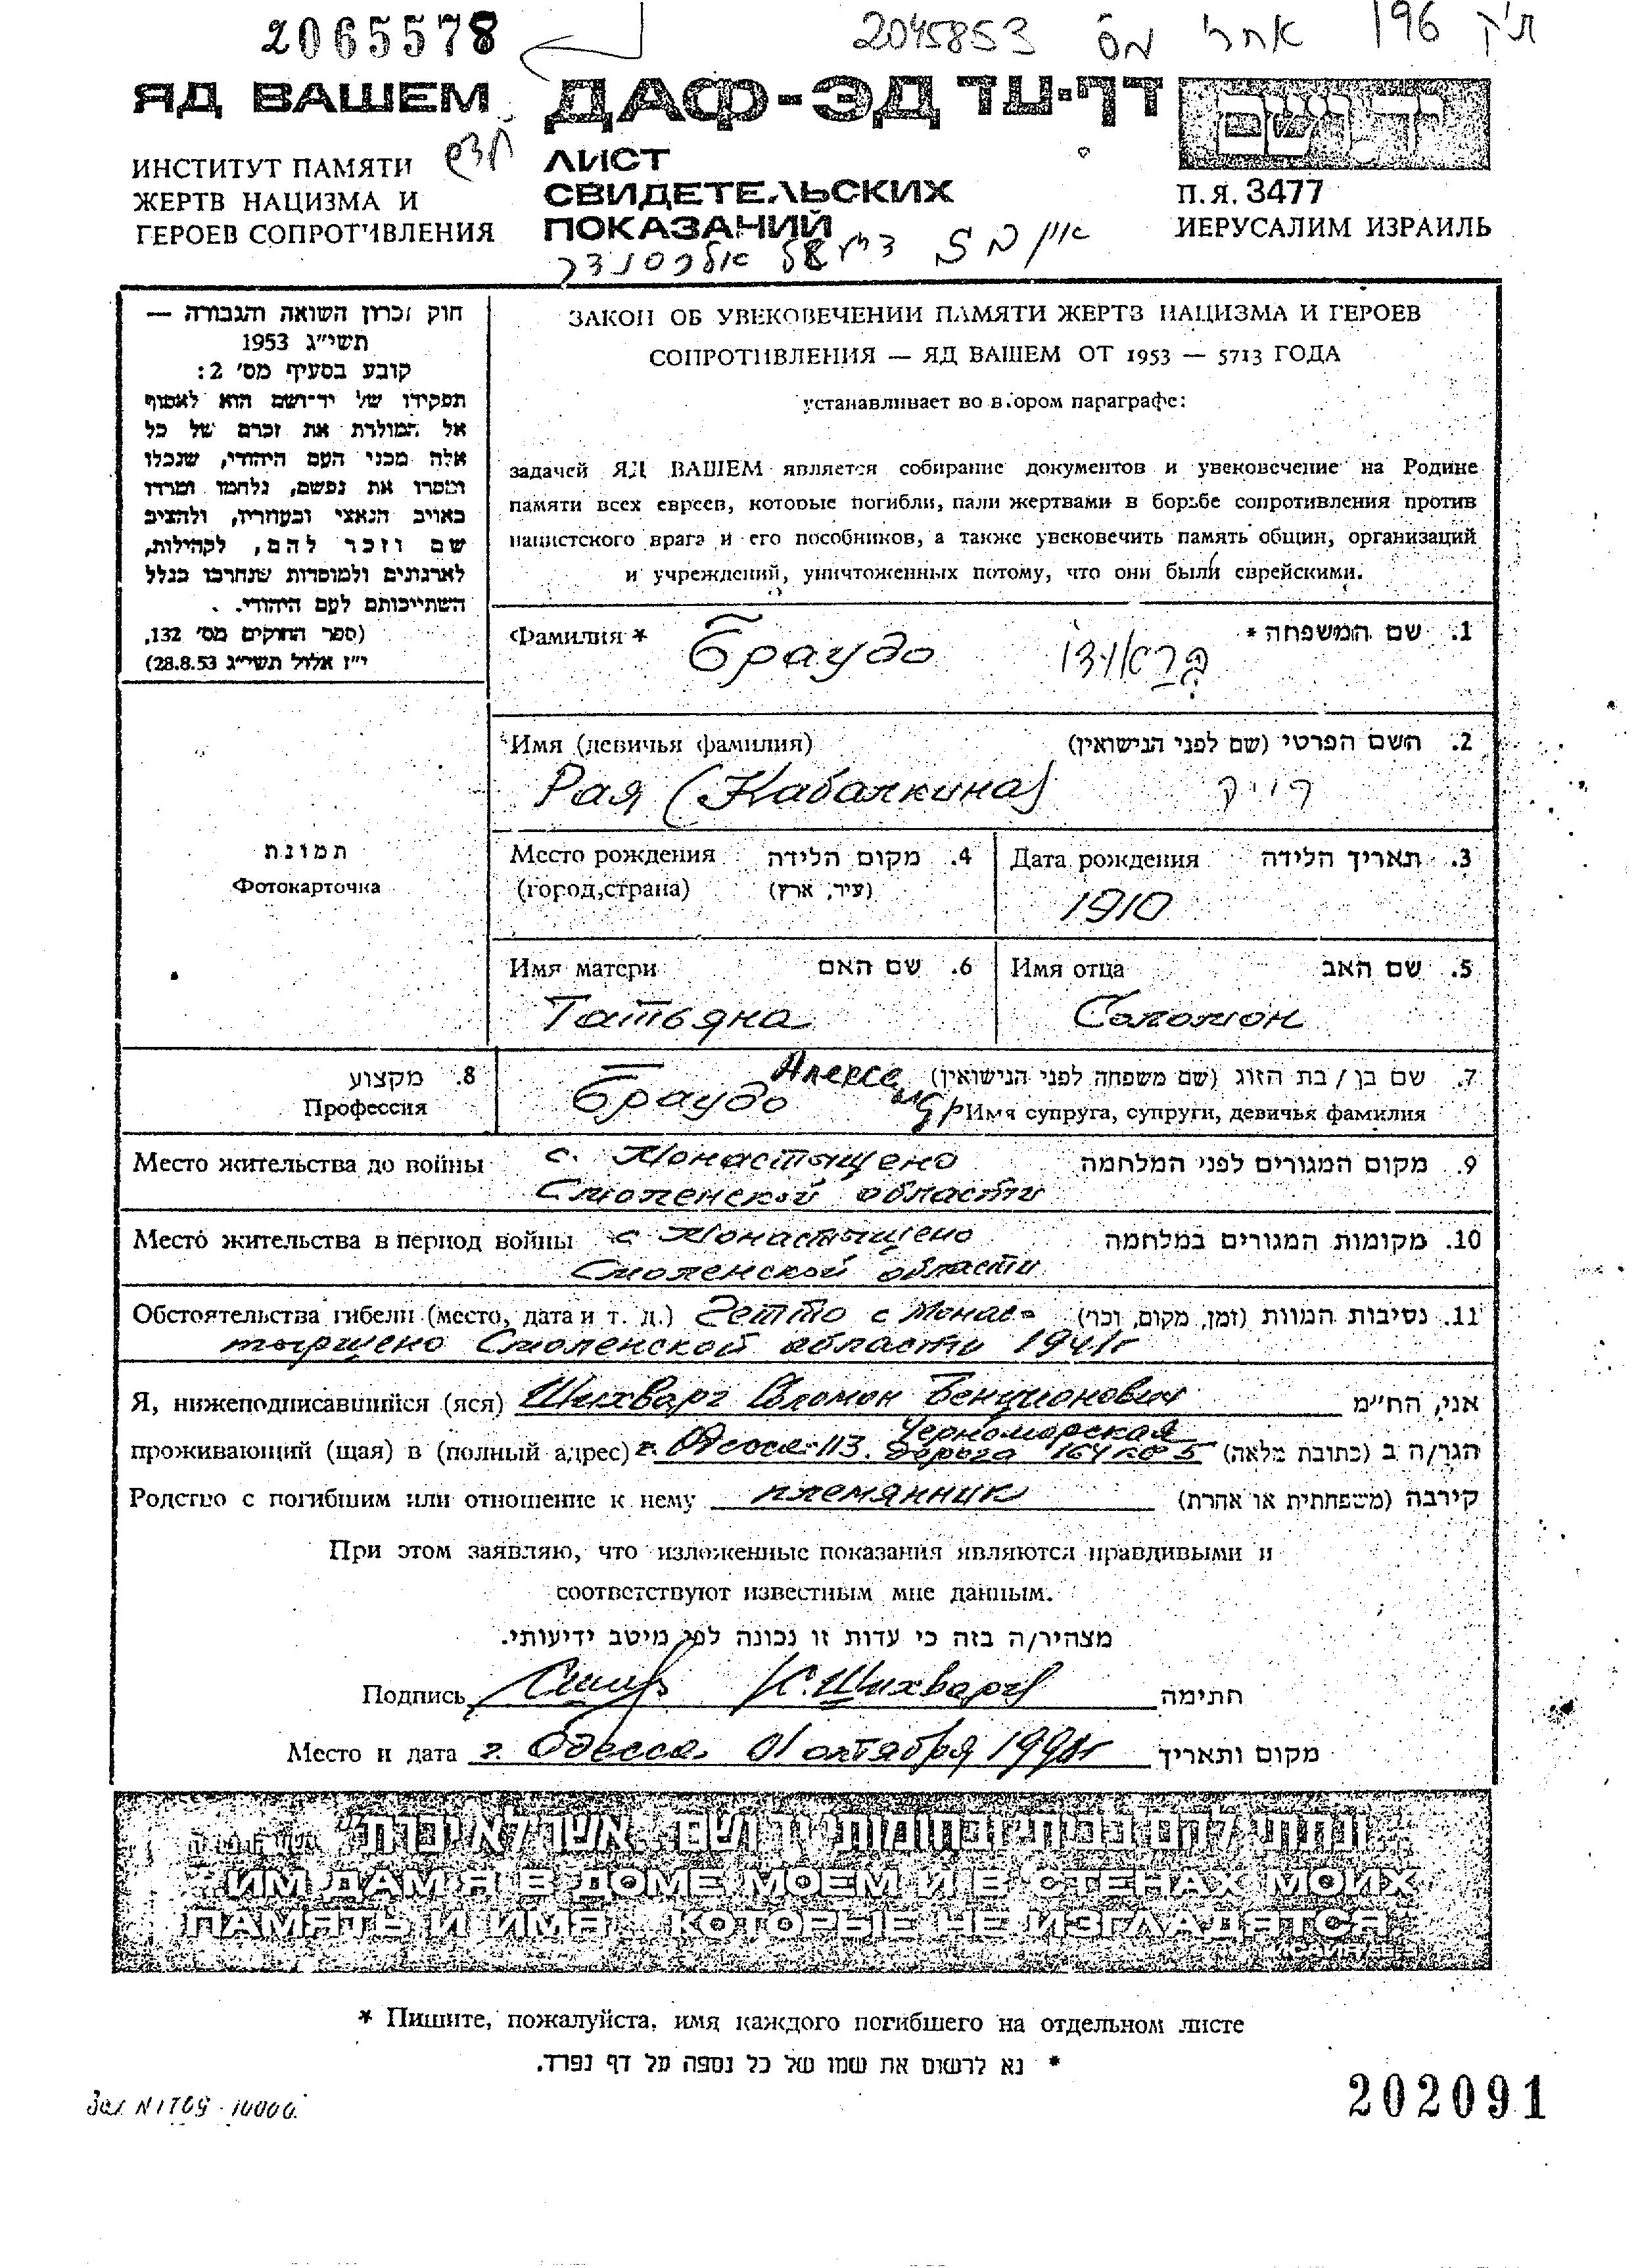 2065578
2045853 אחרי מס 196 תיק
ЯД ВАШЕМ
ДАФ-ЭД דף-עד
יד ושם
ИНСТИТУТ ПАМЯТИ
ЖЕРТВ НАЦИЗМА И
ГЕРОЕВ СОПРОТИВЛЕНИЯ
ЛИСТ
СВИДЕТЕЛЬСКИХ
ПОКАЗАНИЙ
П.Я. 3477
ИЕРУСАЛИМ ИЗРАИЛЬ
חוק זכרון השואה והגבורה —
תשי״ג 1953
קובע בסעיף מס׳ 2:
תפקידו של יד-ושם הוא לאסוף
אל המולדת את זכרם של כל
אלה מבני העם היהודי, שנפלו
ומסרו את נפשם, נלחמו ומרדו
באויב הנאצי ובעוזריו, ולהציב
שם וזכר להם, לקהילות,
לארגונים ולמוסדות שנחרבו בגלל
השתייכותם לעם היהודי.
(ספר החוקים מס׳ 132,
י״ז אלול תשי״ג 28.8.53)
ЗАКОН ОБ УВЕКОВЕЧЕНИИ ПАМЯТИ ЖЕРТВ НАЦИЗМА И ГЕРОЕВ
СОПРОТИВЛЕНИЯ — ЯД ВАШЕМ ОТ 1953 — 5713 ГОДА
устанавливает во втором параграфе:
задачей ЯД ВАШЕМ является собирание документов и увековечение на Родине
памяти всех евреев, которые погибли, пали жертвами в борьбе сопротивления против
нацистского врага и его пособников, а также увековечить память общин, организаций
и учреждений, уничтоженных потому, что они были еврейскими.
Фамилия * Браудо בראודו 1. שם המשפחה *
Имя (девичья фамилия) 2. השם הפרטי (שם לפני הנישואין)
Рая (Кабалкина)
תמונת
Фотокарточка
Место рождения 4. מקום הלידה
(город, страна) (עיר, ארץ)
Дата рождения 3. תאריך הלידה
1910
Имя матери 6. שם האם
Татьяна
Имя отца 5. שם האב
Соломон
8. מקצוע
Профессия
7. שם בן / בת הזוג (שם משפחה לפני הנישואין)
Имя супруга, супруги, девичья фамилия
Браудо Александр
Место жительства до войны с. Монастыщено 9. מקום המגורים לפני המלחמה
Смоленской области
Место жительства в период войны с Монастыщено 10. מקומות המגורים במלחמה
Смоленской области
Обстоятельства гибели (место, дата и т. д.) Гетто с Монас- 11. נסיבות המוות (זמן, מקום, וכו׳)
тырщено Смоленской области 1941г
Я, нижеподписавшийся (яся) Шихварг Соломон Бенционович אני, הח״מ
проживающий (щая) в (полный адрес) г. Одесса-113. Черноморская дорога 164 кв 5 הגר/ה ב (כתובת מלאה)
Родство с погибшим или отношение к нему племянник קירבה (משפחתית או אחרת)
При этом заявляю, что изложенные показания являются правдивыми и
соответствуют известным мне данным.
מצהיר/ה בזה כי עדות זו נכונה לפי מיטב ידיעותי.
Подпись (С. Шихварг) חתימה
Место и дата г. Одесса. 01 октября 1991г מקום ותאריך
ונתתי להם בביתי ובחומותי יד ושם... אשר לא יכרת״
"ИМ ДАМ Я В ДОМЕ МОЕМ И В СТЕНАХ МОИХ
ПАМЯТЬ И ИМЯ... КОТОРЫЕ НЕ ИЗГЛАДЯТСЯ"
* Пишите, пожалуйста, имя каждого погибшего на отдельном листе
* נא לרשום את שמו של כל נספה על דף נפרד.
Зак N1709-10000
202091